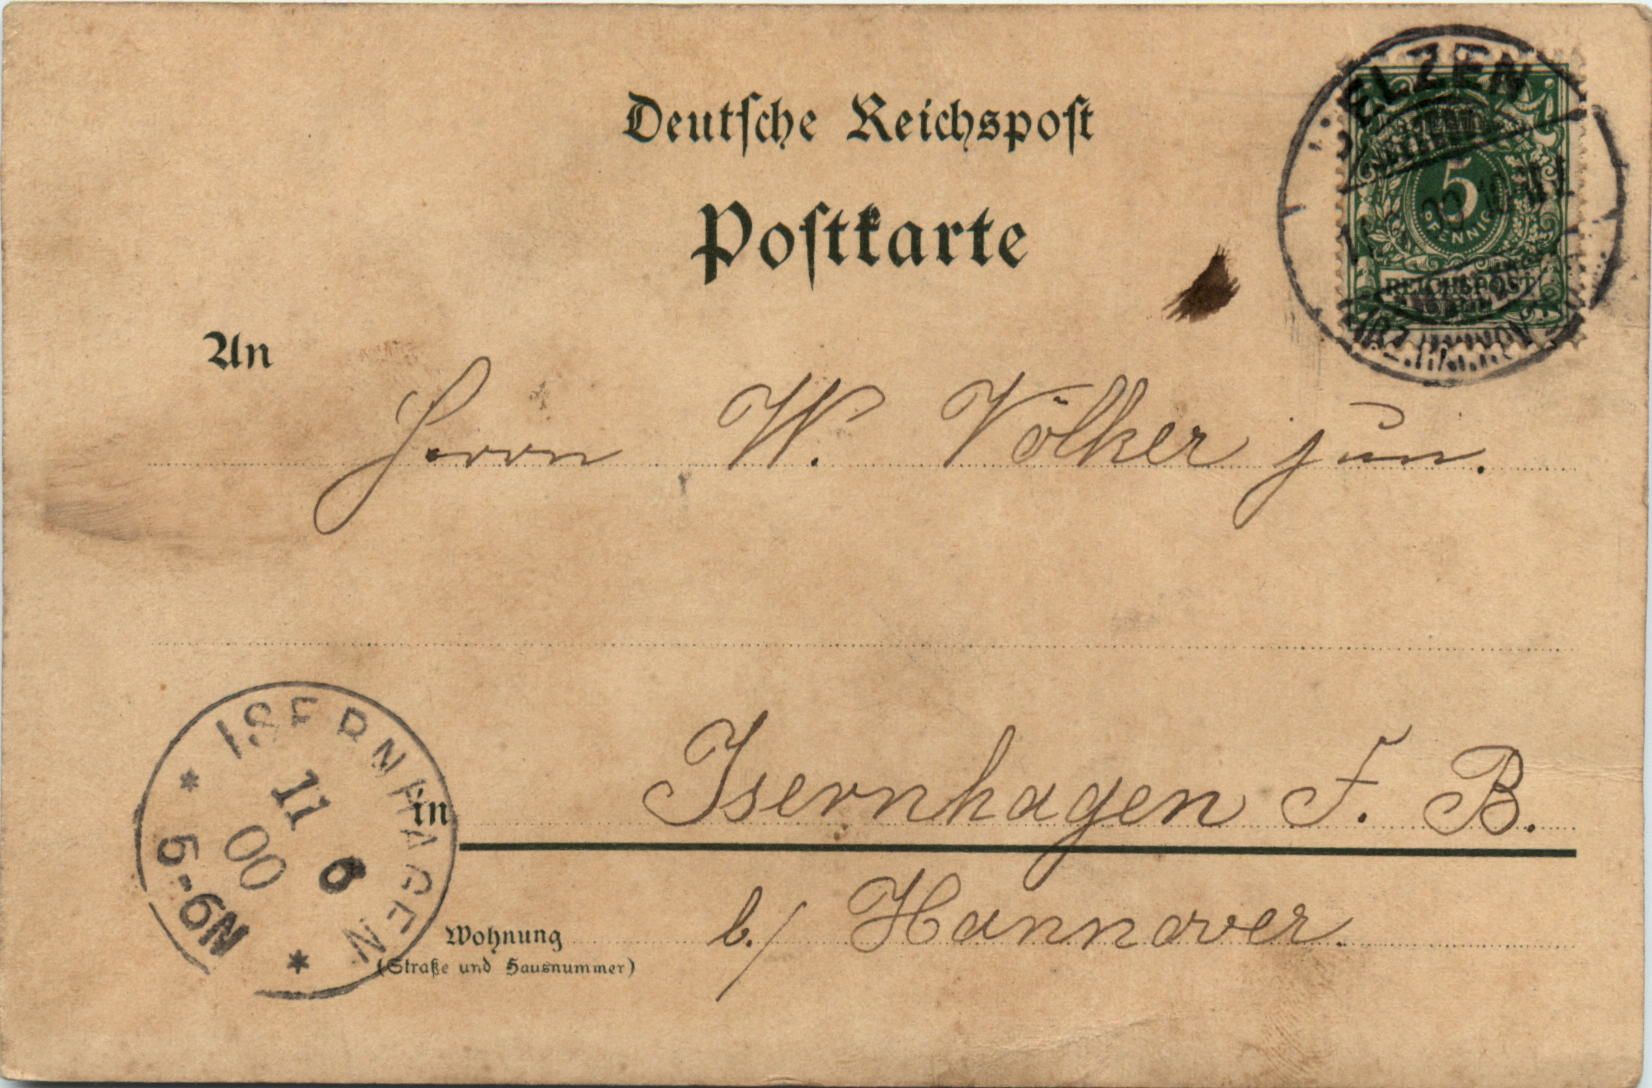 Deutsche Reichspost
Postkarte
ELZEN
5
PFENNIG
REICHSPOST
An
Herrn W. Völker jun.
Isernhagen F. B.
in
b./ Hannover.
Wohnung
(Straße und Hausnummer)
ISERNHAGEN
11 6
00
5-6N